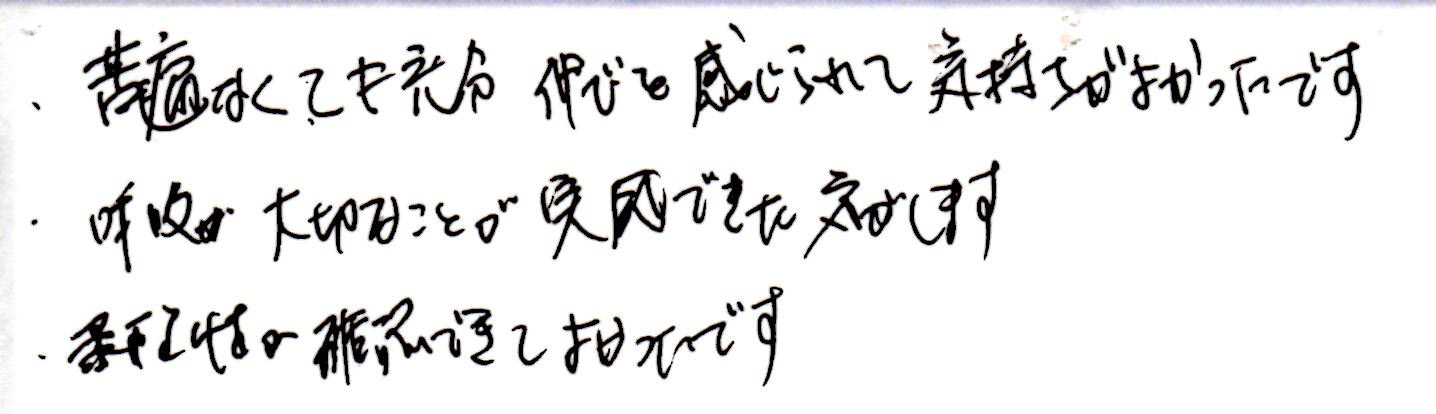 ・苦痛なくても充分 伸びを感じられて気持ちがよかったです
・呼吸が大切なことが実感できた気がします
・柔軟性が確認できてよかったです